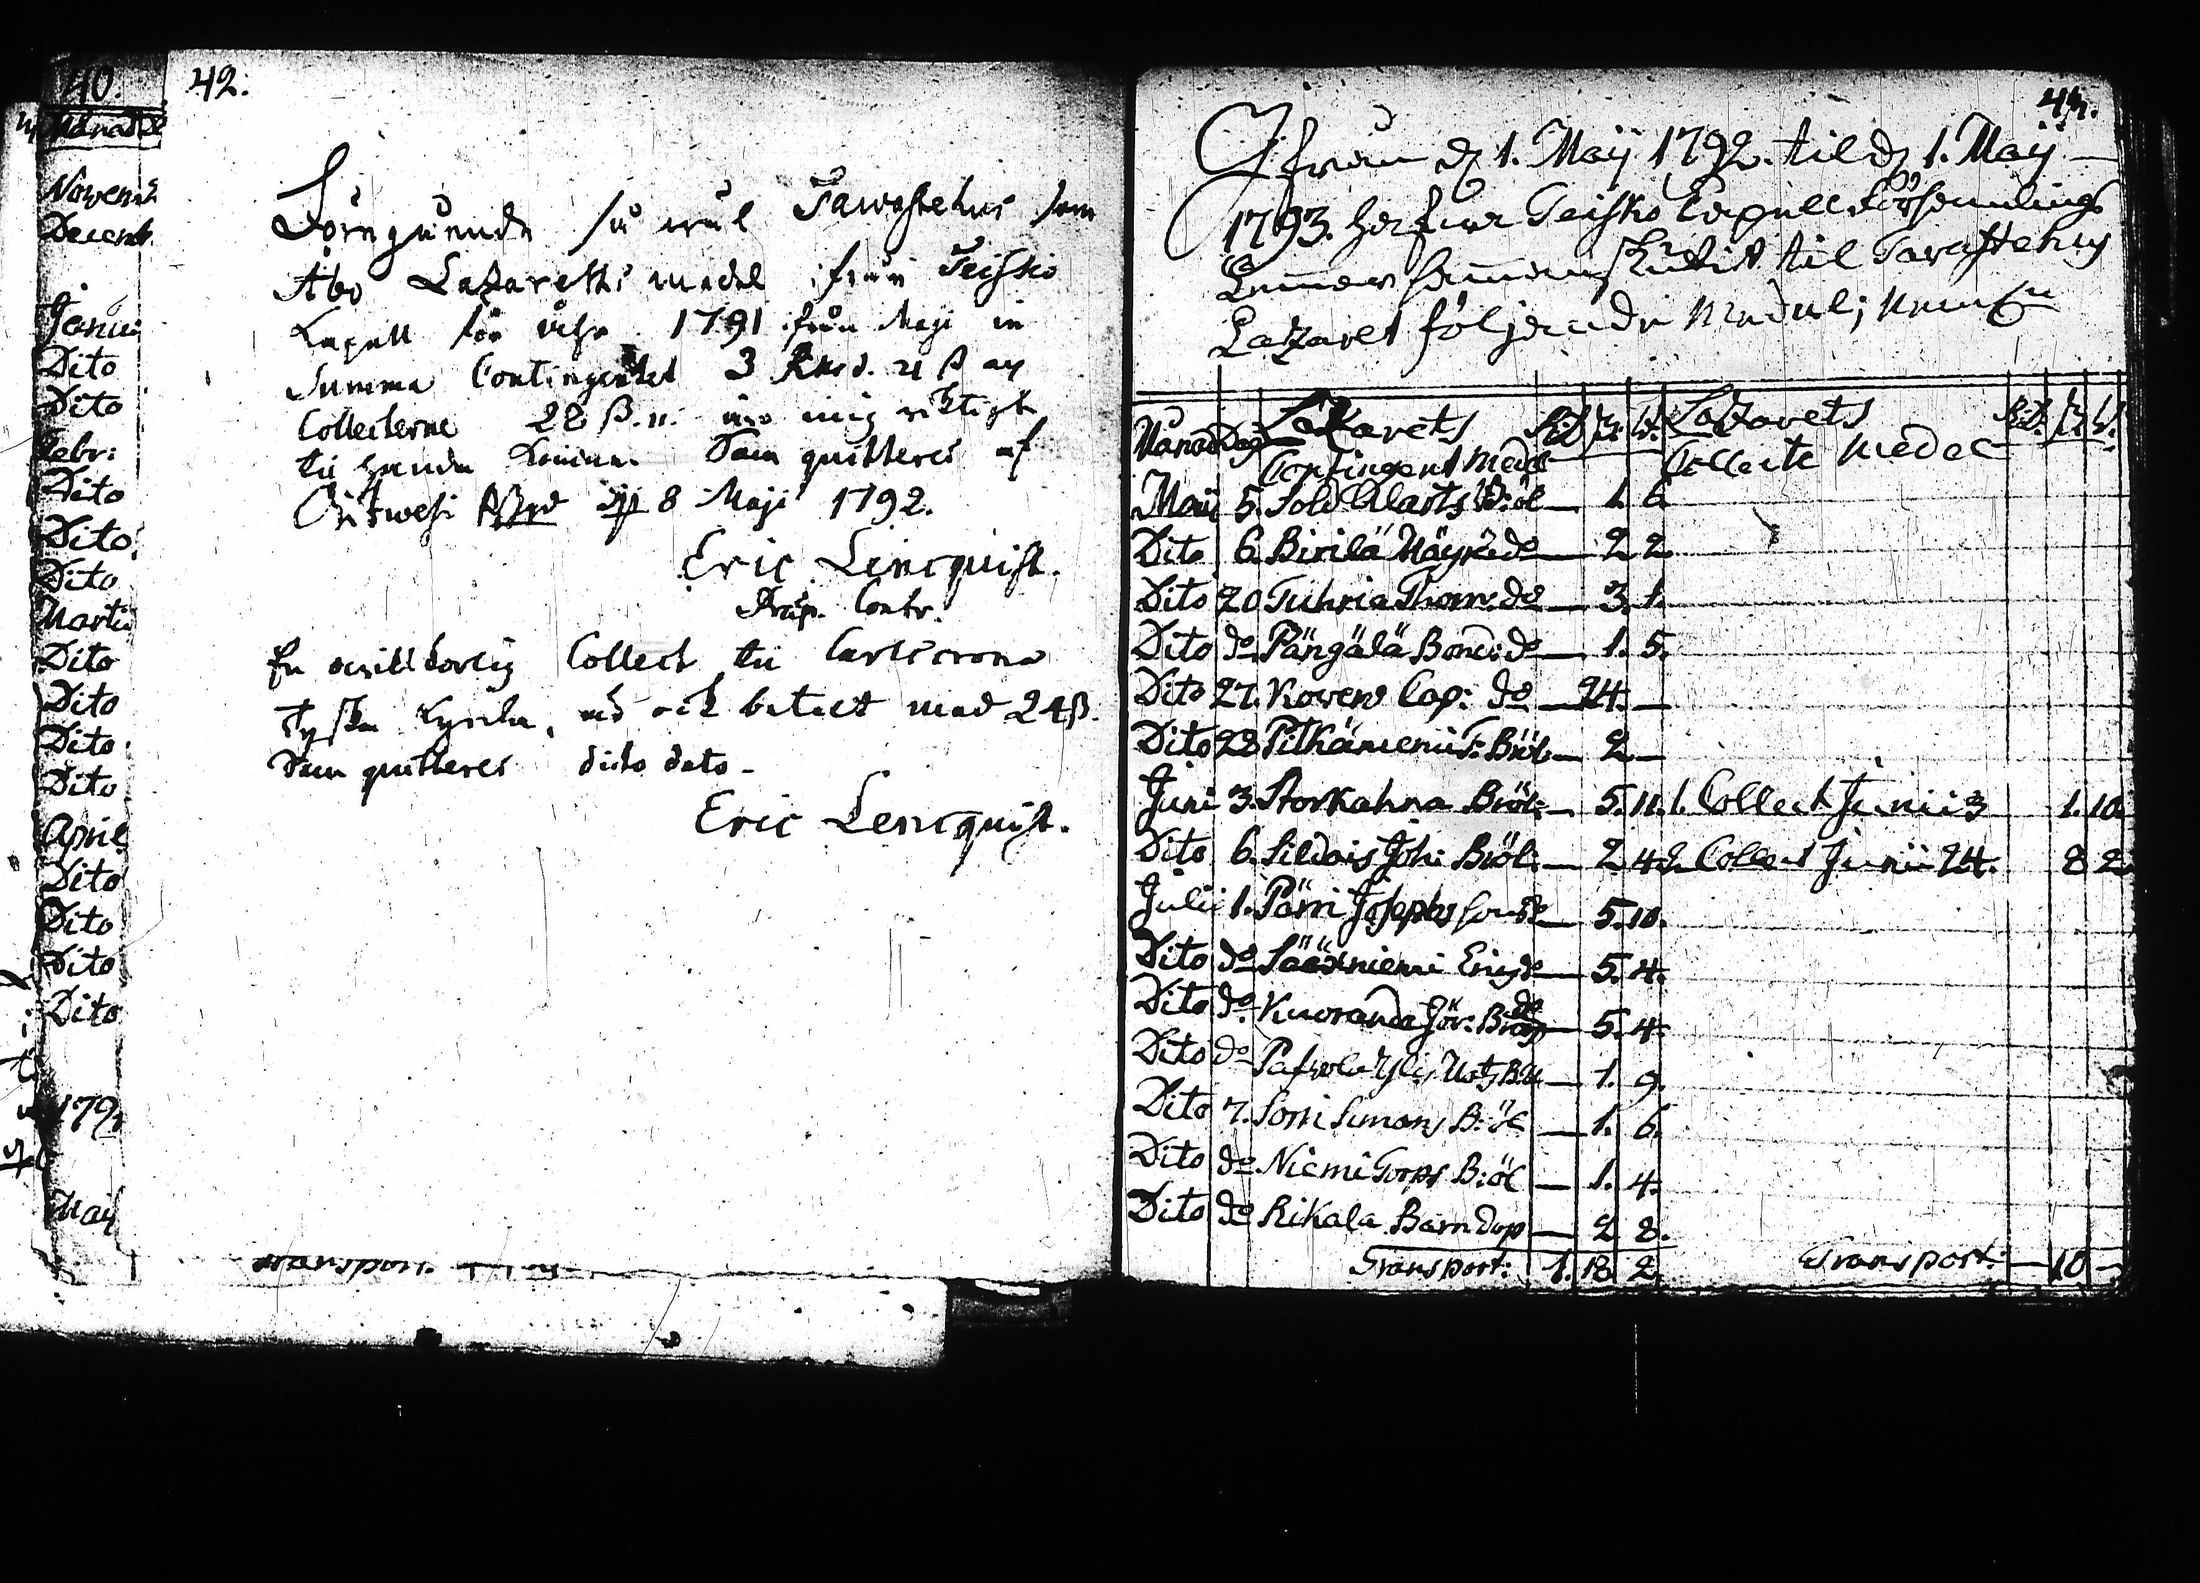 40.
Månad
Novemb
Decemb
Janu:
Dito
Dito
Febr:
Dito
Dito
Dito
Martii
Dito
Dito
Dito
Dito
April
Dito
Dito
Dito
Dito
179
Maij
42.
Föregående så wäl Tawastehus som
Åbo Lazaretts medel ifrån Teisko
Capell för åhr 1791 ifrån Maji in
Summa Contingentet 3 Rksd. 21 ß af
Collecterne 28 ß. 11. äro mig riktigt
til handa komne. Som quitteres af
Oritwesi d. 8 Maji 1792.
Eric Lencquist.
Præp. Contr.
En Collect til Carlscrona
Tyska Kyrka, är ock betalt med 24 ß.
Som quitteres dito dato.
Eric Lencquist.
Transport.
43.
Ifrån d. 1. Maij 1792. til d. 1. Maij
1793. hafwa Teisko Capells Församlings
til Tavastehus
Lazaret följande Medel; nemln
Månad Dag Lazarets Contingent Medel Rd. ß. Lazarets Collecte Medel Rd. ß.
Maij 5. Sold. Bröl — 1. 6.
Dito 6. Birilä do — 2 2.
Dito 20 Tuhria Thom: do — 3. 1.
Dito do Pängälä Bond: do — 1. 5.
Dito 27. Kovero Cap: do — 24. —
Dito 28 Pitkäniemi T: Bröl — 2 —
Juni 3. Storkahna Bröl: — 5. 11. 1. Collect Junii 3 1. 10.
Dito 6. Sildois Joh: Bröl. — 2. 4. 2. Collect Junii 24. 8 2
Julii 1. Pärri Josephs do — 5. 10.
Dito do Sääxniemi Erics do — 5. 4.
Dito do Kuoranda Jör: do — 5. 4.
Dito do Pafvola Yli, B:öl — 1. 9.
Dito 7. Sorri Simons B:öl — 1. 6.
Dito do Niemi Torps B:öl — 1. 4.
Dito do Rikala Barndop — 2 8.
Transport: 1. 18 2. Transport: — 10 —